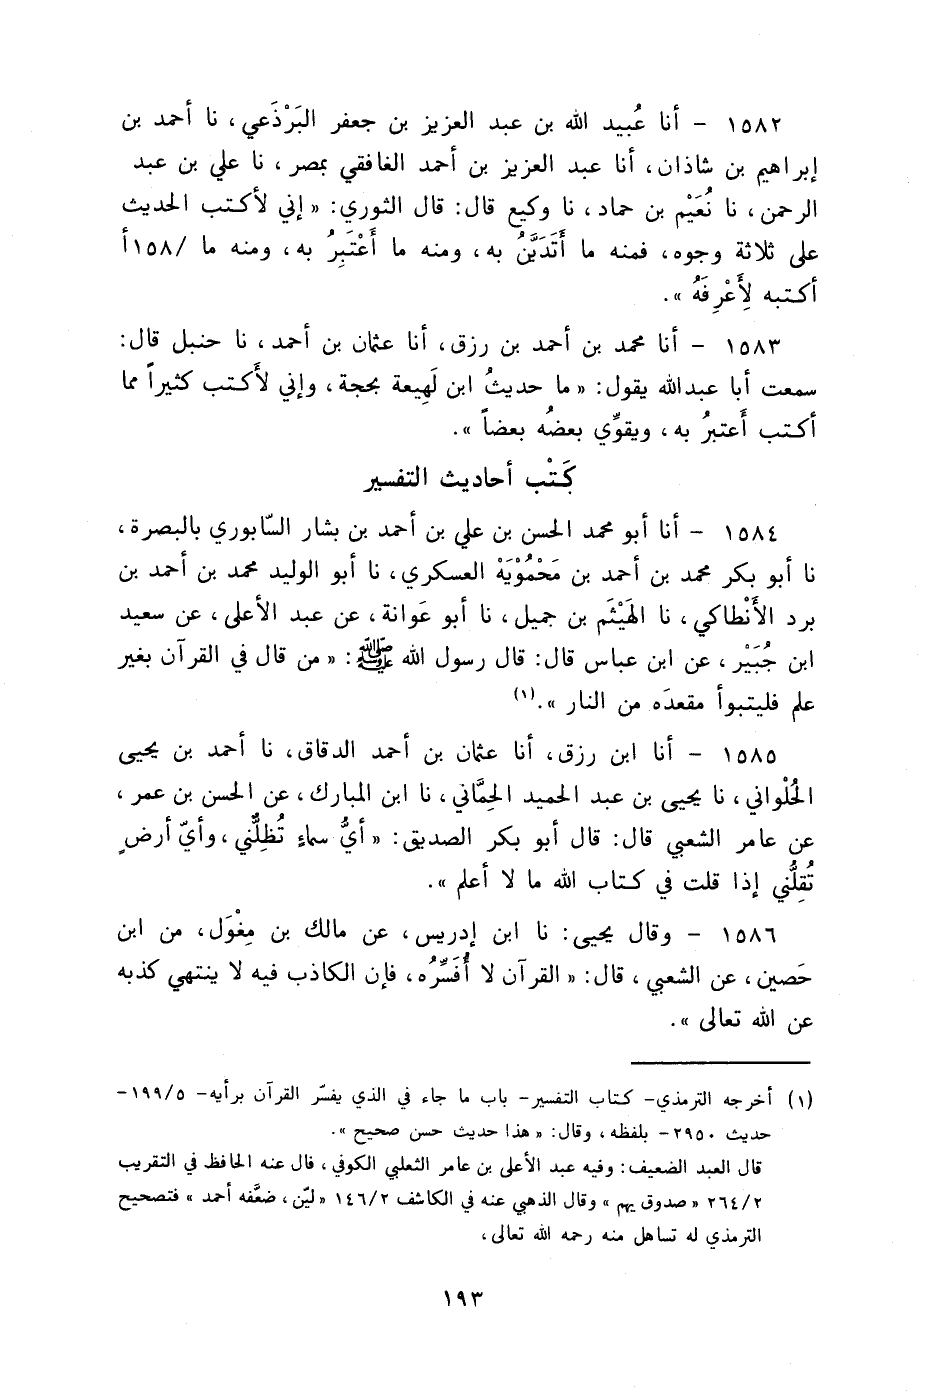 ١٥٨٢ - أنا عُبيد الله بن عبد العزيز بن جعفر البَرْذَعي، نا أحمد بن
إبراهيم بن شاذان، أنا عبد العزيز بن أحمد الغافقي بمصر، نا علي بن عبد
الرحمن، نا نُعَيْم بن حماد، نا وكيع قال: قال الثوري: « إني لأكتب الحديث
على ثلاثة وجوه، فمنه ما أَتَدَيَّنُ به، ومنه ما أَعْتَبِرُ به، ومنه ما /١٥٨أ
أكتبه لِأَعْرِفَهُ ».
١٥٨٣ - أنا محمد بن أحمد بن رزق، أنا عثمان بن أحمد، نا حنبل قال:
سمعت أبا عبدالله يقول: « ما حديثُ ابن لَهِيعة بحجة، وإني لأَكتب كثيراً مما
أكتب أَعتبرُ به، ويقوِّي بعضُه بعضاً ».
كَتْب أحاديث التفسير
١٥٨٤ - أنا أبو محمد الحسن بن علي بن أحمد بن بشار السّابوري بالبصرة،
نا أبو بكر محمد بن أحمد بن مَحْمُوْيَهْ العسكري، نا أبو الوليد محمد بن أحمد بن
برد الأَنْطاكي، نا الهَيْثَم بن جميل، نا أبو عَوانة، عن عبد الأعلى، عن سعيد
ابن جُبَيْر، عن ابن عباس قال: قال رسول الله ﷺ: « من قال في القرآن بغير
علم فليتبوأ مقعدَه من النار ».(١)
١٥٨٥ - أنا ابن رزق، أنا عثمان بن أحمد الدقاق، نا أحمد بن يحيى
الحُلْواني، نا يحيى بن عبد الحميد الحِمَّاني، نا ابن المبارك، عن الحسن بن عمر،
عن عامر الشعبي قال: قال أبو بكر الصديق: « أيُّ سماءٍ تُظِلُّني، وأيّ أرضٍ
تُقِلُّني إذا قلت في كتاب الله ما لا أعلم ».
١٥٨٦ - وقال يحيى: نا ابن إدريس، عن مالك بن مِغْوَل، من ابن
حَصين، عن الشعبي، قال: « القرآن لا أُفَسِّرُه، فإن الكاذب فيه لا ينتهي كذبه
عن الله تعالى ».
(١) أخرجه الترمذي- كتاب التفسير- باب ما جاء في الذي يفسّر القرآن برأيه- ١٩٩/٥-
حديث ٢٩٥٠- بلفظه، وقال: « هذا حديث حسن صحيح ».
قال العبد الضعيف: وفيه عبد الأعلى بن عامر الثعلبي الكوفي، قال عنه الحافظ في التقريب
٢٦٤/٢ « صدوق يهم » وقال الذهبي عنه في الكاشف ١٤٦/٢ « ليّن، ضعَّفه أحمد » فتصحيح
الترمذي له تساهل منه رحمه الله تعالى،
١٩٣